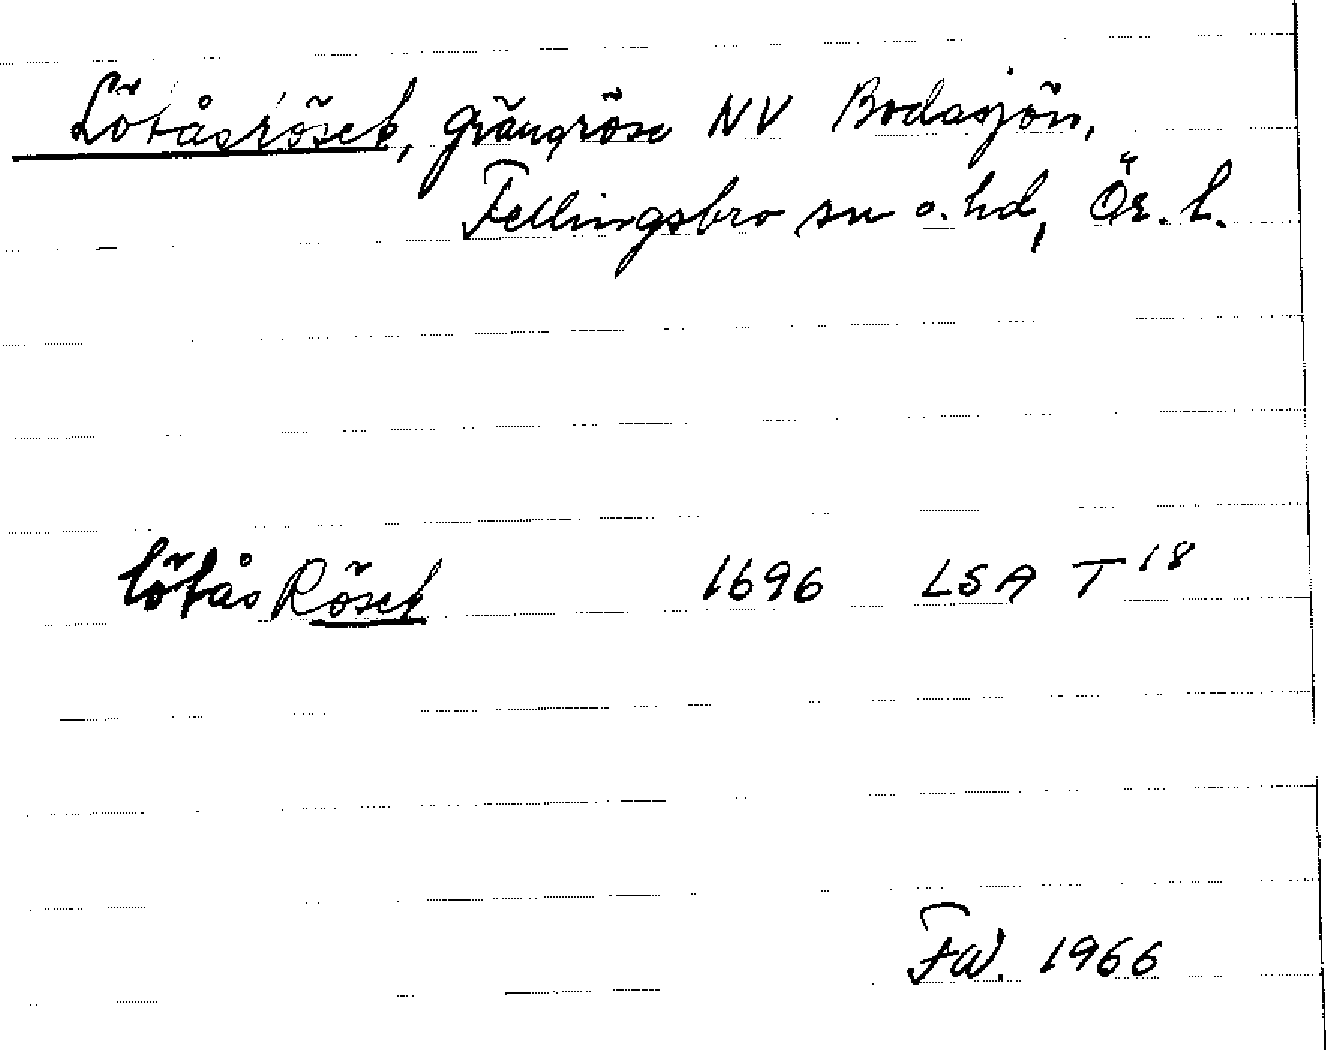 Lötåsröset, gränsröse NV Bodasjön,
Fellingsbro sn o. hd, Ör. l.
lötås Röset 1696 LSA T 18
FW. 1966